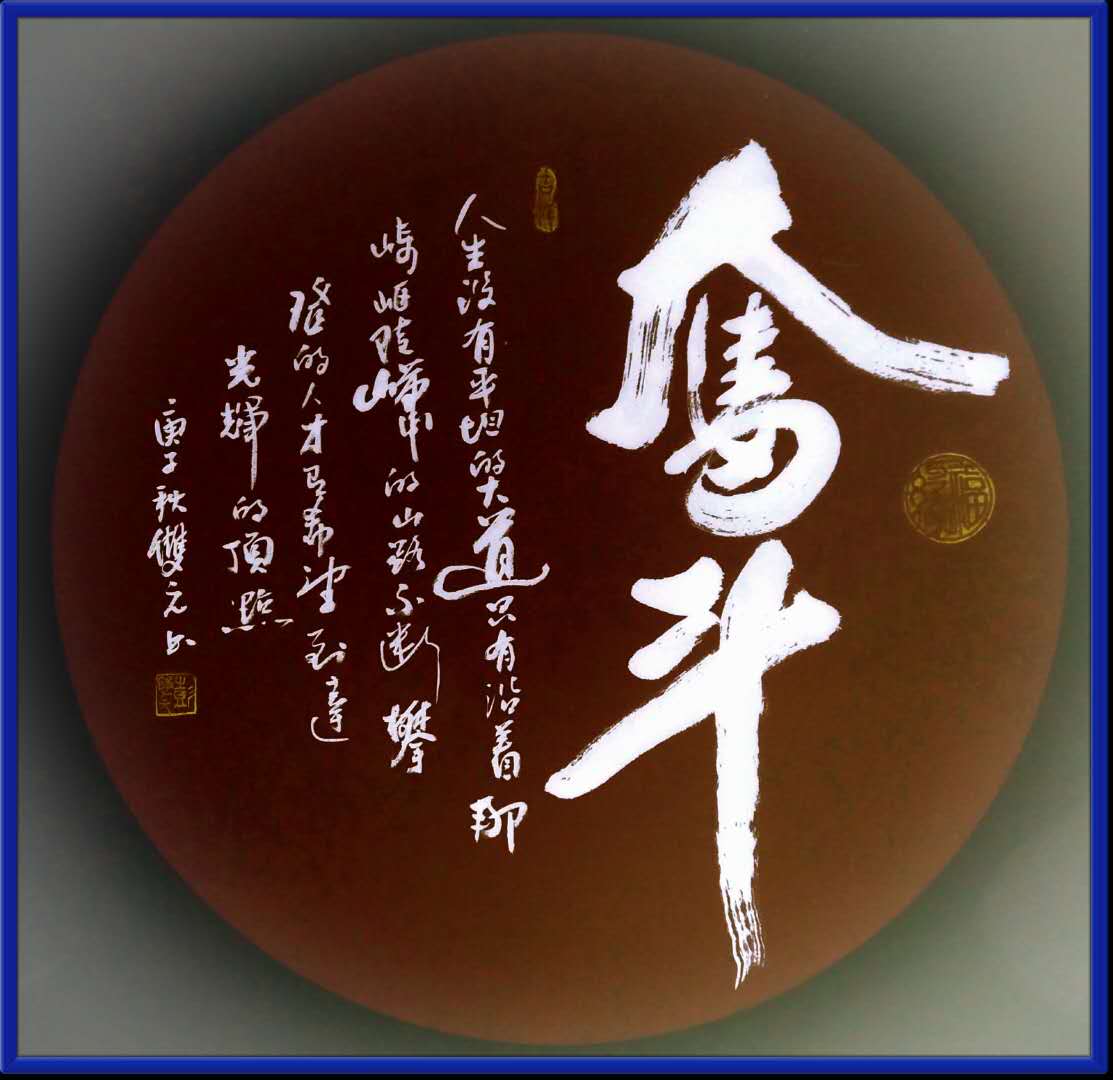 奮斗
人生没有平坦的大道只有沿着那
崎岖陡的山路不斷攀
登的人才有希望到達
光輝的頂點
庚子秋雙元书